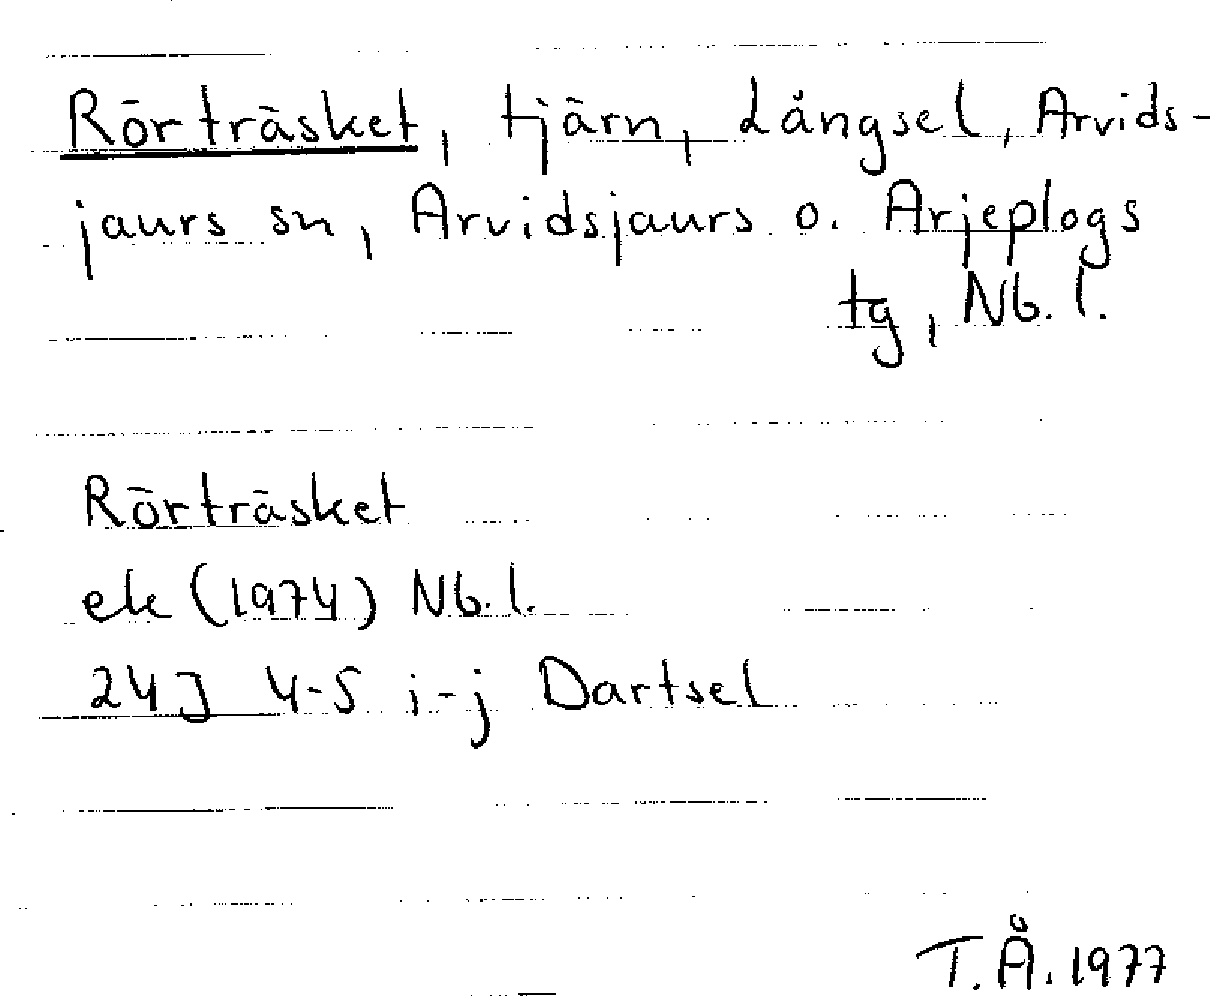 Rörträsket, tjärn, Långsel, Arvids-
jaurs sn, Arvidsjaurs o. Arjeplogs
tg, Nb. l.
Rörträsket
ek (1974) Nb. l.
24J 4-5 i-j Dartsel
T.Å. 1977